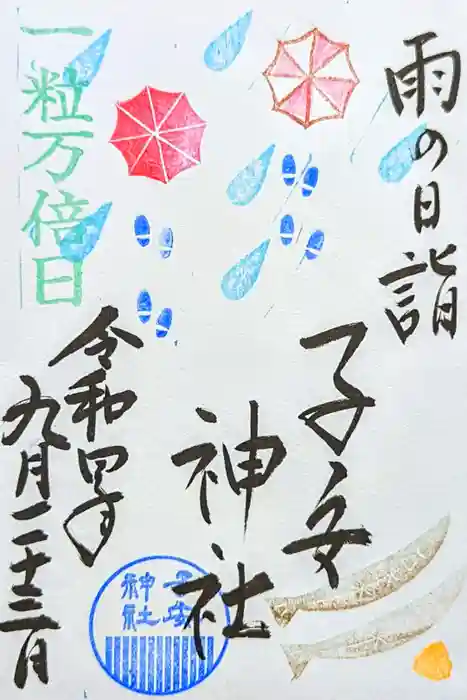 雨の日詣
子安
神社
一粒万倍日
令和四年
九月二十三日
子安
神社